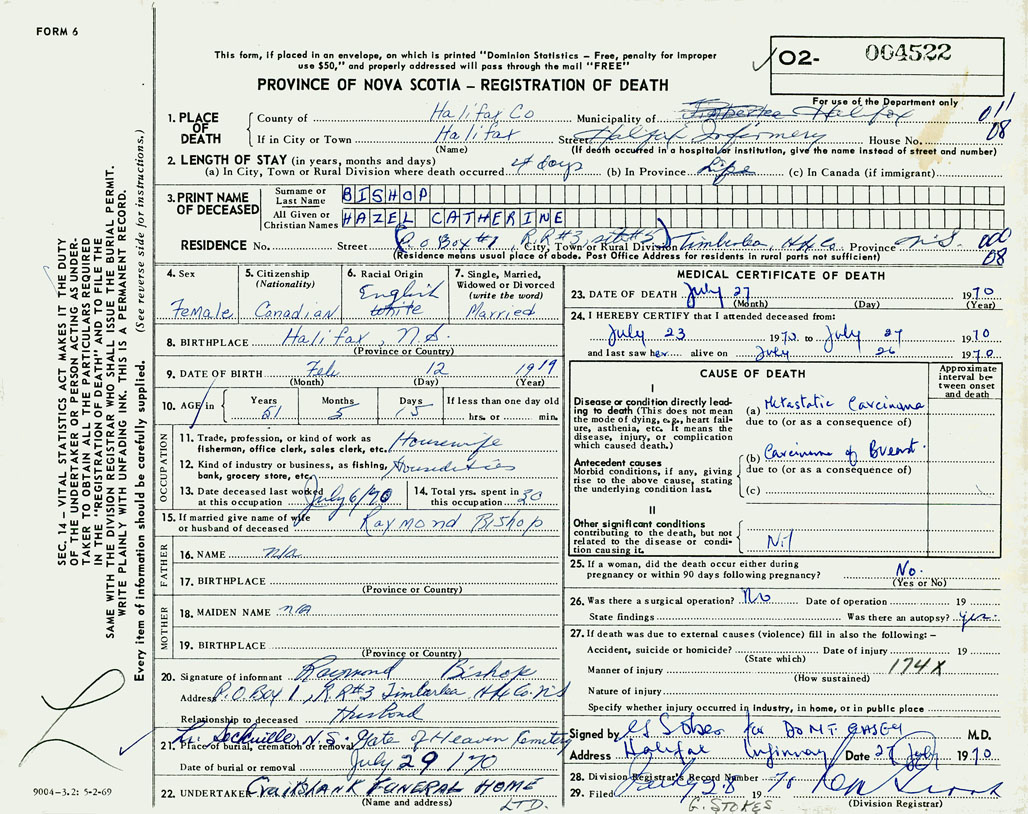 FORM 6
This form, if placed in an envelope, on which is printed "Dominion Statistics – Free, penalty for Improper
use $50," and properly addressed will pass through the mail "FREE"
O2- 004522
PROVINCE OF NOVA SCOTIA – REGISTRATION OF DEATH
For use of the Department only
1. PLACE OF DEATH
County of Halifax Co Municipality of Halifax 011
If in City or Town Halifax Street Halifax Infirmary House No. 08
(Name) (If death occurred in a hospital or institution, give the name instead of street and number)
2. LENGTH OF STAY (in years, months and days)
(a) In City, Town or Rural Division where death occurred 4 days (b) In Province Life (c) In Canada (if immigrant)
3. PRINT NAME OF DECEASED
Surname or Last Name BISHOP
All Given or Christian Names HAZEL CATHERINE
RESIDENCE No. Street P.O Box #1, R.R#3, City, Town or Rural Division Timberlea Hx Co Province N.S. 000
(Residence means usual place of abode. Post Office Address for residents in rural parts not sufficient) 08
4. Sex Female
5. Citizenship (Nationality) Canadian
6. Racial Origin English White
7. Single, Married, Widowed or Divorced (write the word) Married
8. BIRTHPLACE Halifax, N.S.
(Province or Country)
9. DATE OF BIRTH Feb 12 1919
(Month) (Day) (Year)
10. AGE in Years 51 Months 5 Days 15 If less than one day old
hrs. or min.
OCCUPATION
11. Trade, profession, or kind of work as fisherman, office clerk, sales clerk, etc. Housewife
12. Kind of industry or business, as fishing, bank, grocery store, etc. Houseduties
13. Date deceased last worked at this occupation July 6/70
14. Total yrs. spent in this occupation 30
15. If married give name of wife or husband of deceased Raymond Bishop
FATHER
16. NAME n/a
17. BIRTHPLACE
(Province or Country)
MOTHER
18. MAIDEN NAME n/a
19. BIRTHPLACE
(Province or Country)
20. Signature of informant Raymond Bishop
Address P.O. Box 1, R.R#3 Timberlea Hx Co N S
Relationship to deceased Husband
Lr. Sackville, N.S. Gate of Heaven Cemetery
21. Place of burial, cremation or removal
Date of burial or removal July 29 / 70
22. UNDERTAKER Cruikshank FUNERAL HOME LTD.
(Name and address)
MEDICAL CERTIFICATE OF DEATH
23. DATE OF DEATH July 27 1970
(Month) (Day) (Year)
24. I HEREBY CERTIFY that I attended deceased from:
July 23 1970 to July 27 1970
and last saw her alive on July 26 1970
CAUSE OF DEATH
Approximate interval between onset and death
I
Disease or condition directly leading to death (This does not mean the mode of dying, e.g., heart failure, asthenia, etc. It means the disease, injury, or complication which caused death.)
(a) Metastatic Carcinoma
due to (or as a consequence of)
Antecedent causes
Morbid conditions, if any, giving rise to the above cause, stating the underlying condition last.
(b) Carcinoma of Breast
due to (or as a consequence of)
(c)
II
Other significant conditions
contributing to the death, but not related to the disease or condition causing it.
Nil
25. If a woman, did the death occur either during pregnancy or within 90 days following pregnancy? No.
(Yes or No)
26. Was there a surgical operation? No Date of operation 19
State findings Was there an autopsy? yes
27. If death was due to external causes (violence) fill in also the following:–
Accident, suicide or homicide? Date of injury 19
(State which)
Manner of injury 174X
(How sustained)
Nature of injury
Specify whether injury occurred in industry, in home, or in public place
Signed by G Stokes for M.D.
Address Halifax Infirmary Date 27 July 1970
28. Division Registrar's Record Number
29. Filed July 28 19 70
(Division Registrar)
G. STOKES
SEC. 14 – VITAL STATISTICS ACT MAKES IT THE DUTY
OF THE UNDERTAKER OR PERSON ACTING AS UNDER-
TAKER TO OBTAIN ALL THE PARTICULARS REQUIRED
IN THE "REGISTRATION OF DEATH" AND TO FILE THE
SAME WITH THE DIVISION REGISTRAR WHO SHALL ISSUE THE BURIAL PERMIT.
WRITE PLAINLY WITH UNFADING INK. THIS IS A PERMANENT RECORD.
Every item of information should be carefully supplied. (See reverse side for instructions.)
9004-3.2: 5-2-69